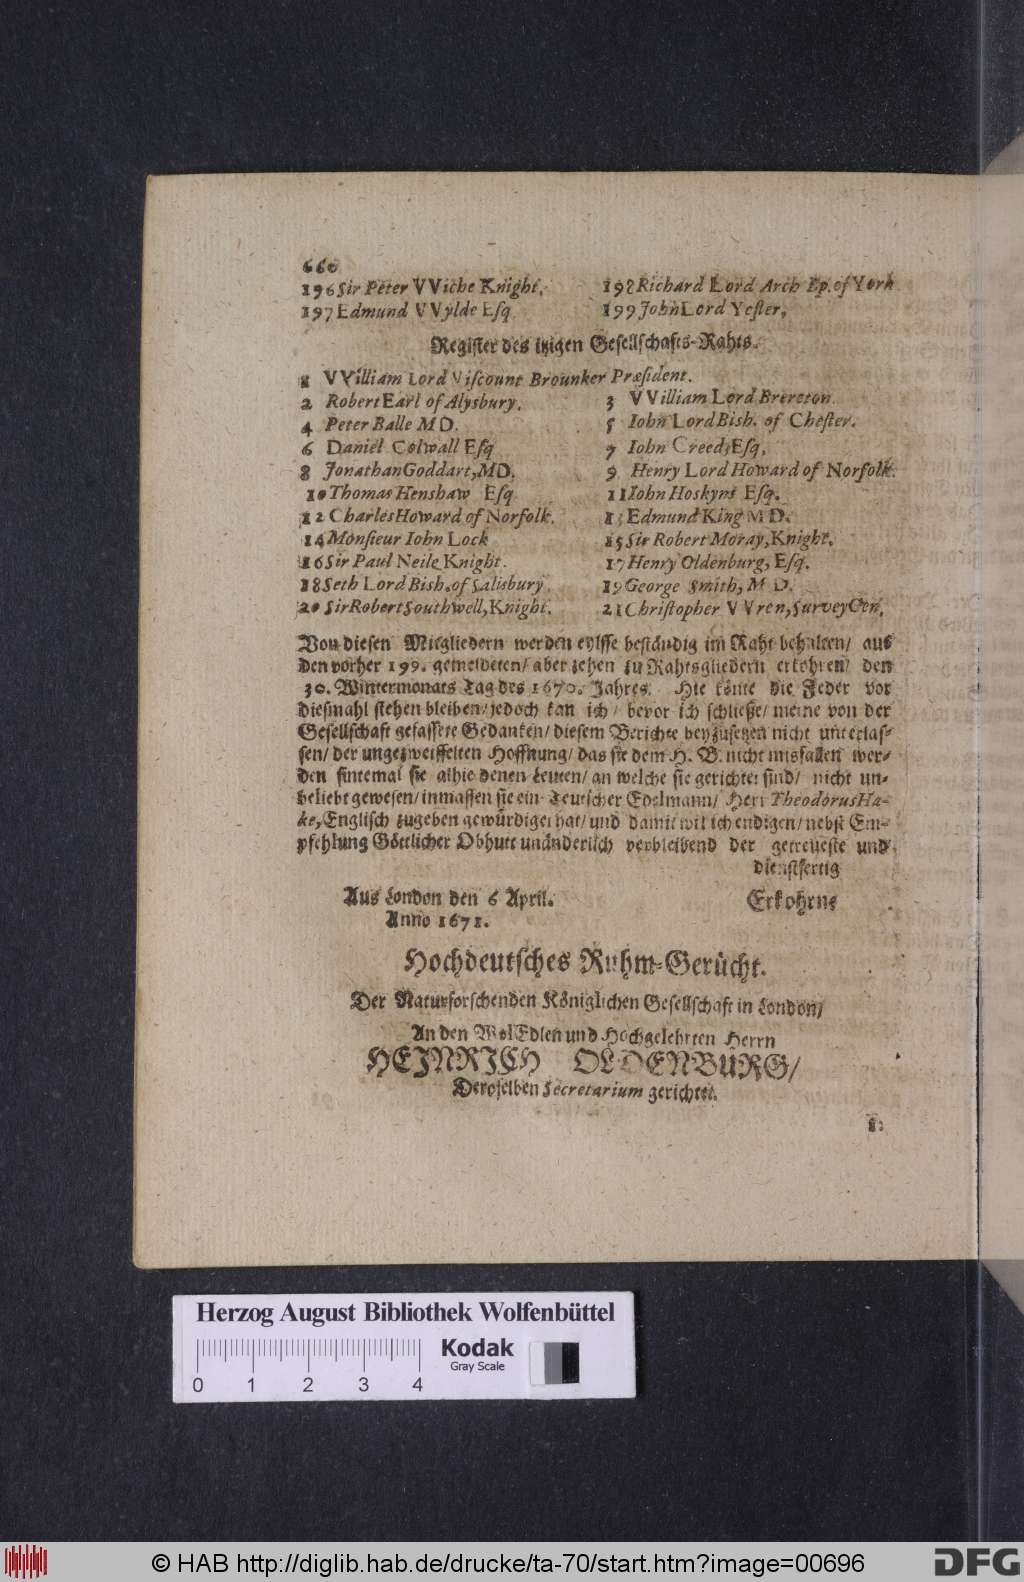 660
196 Sir Peter VViche Knight.
198 Richard Lord Arch Bp. of York
197 Edmund VVylde Esq.
199 John Lord Yester.
Register des itzigen Gesellschafts-Rahts.
1 VVilliam Lord Viscount Brounker Præsident.
2 Robert Earl of Alysbury.
3 VVilliam Lord Brereton.
4 Peter Balle MD.
5 Iohn Lord Bish. of Chester.
6 Daniel Colwall Esq
7 Iohn Creed, Esq.
8 Jonathan Goddart, MD.
9 Henry Lord Howard of Norfolk.
10 Thomas Henshaw Esq.
11 Iohn Hoskyns Esq.
12 Charles Howard of Norfolk.
13 Edmund King MD.
14 Monsieur Iohn Lock
15 Sir Robert Moray, Knight.
16 Sir Paul Neile Knight.
17 Henry Oldenburg, Esq.
18 Seth Lord Bish. of Salisbury.
19 George Smith, MD.
20 Sir Robert Southwell, Knight.
21 Christopher VVren, SurveyGen.
Von diesen Mitgliedern werden eylffe beständig im Raht behalten/ aus
den vorher 199. gemeldeten/ aber zehen zu Rahtsgliedern erkohren/ den
30. Wintermonats Tag des 1670. Jahres. Hie könte die Feder vor
diesmahl stehen bleiben/ jedoch kan ich/ bevor ich schließe/ meine von der
Gesellschaft gefassete Gedanken/ diesem Berichte beyzusetzen nicht unterlas-
sen/ der ungezweiffelten Hoffnung/ das sie dem H. B. nicht misfallen wer-
den sintemal sie alhie denen Leuten/ an welche sie gerichtet sind/ nicht un-
beliebt gewesen/ inmassen sie ein Teutscher Edelmann/ Herr Theodorus Ha-
ke, Englisch zugeben gewürdiget hat/ und damit wil ich endigen/ nebst Em-
pfehlung Göttlicher Obhutt unänderlich verbleibend der getreueste und
dienstfertig
Aus London den 6 April.
Erkohrne
Anno 1671.
Hochdeutsches Ruhm-Gerücht.
Der Naturforschenden Königlichen Gesellschaft in London/
An den WolEdlen und Hochgelehrten Herrn
HEJNRJCH OLDENBURG/
Deroselben Secretarium gerichtet.
1:
Herzog August Bibliothek Wolfenbüttel
Kodak
Gray Scale
0 1 2 3 4
© HAB http://diglib.hab.de/drucke/ta-70/start.htm?image=00696
DFG